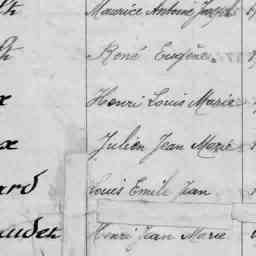 Maurice Antoine Joseph
René Eugène
Henri Louis Marie
Julien Jean Marie
Louis Emile Jean
Henri Jean Marie